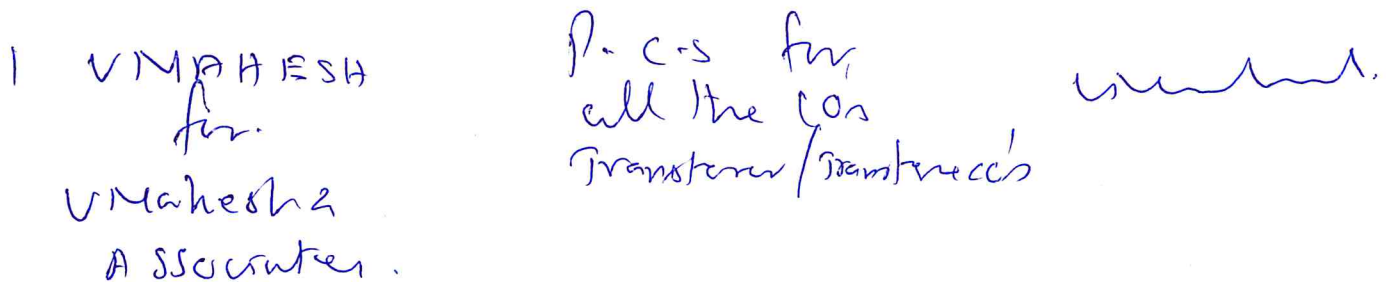 1 V MAHESH
for.
V Mahesh &
Associates.
P. C. S for
all the COs
Transferor/Transferee Co's